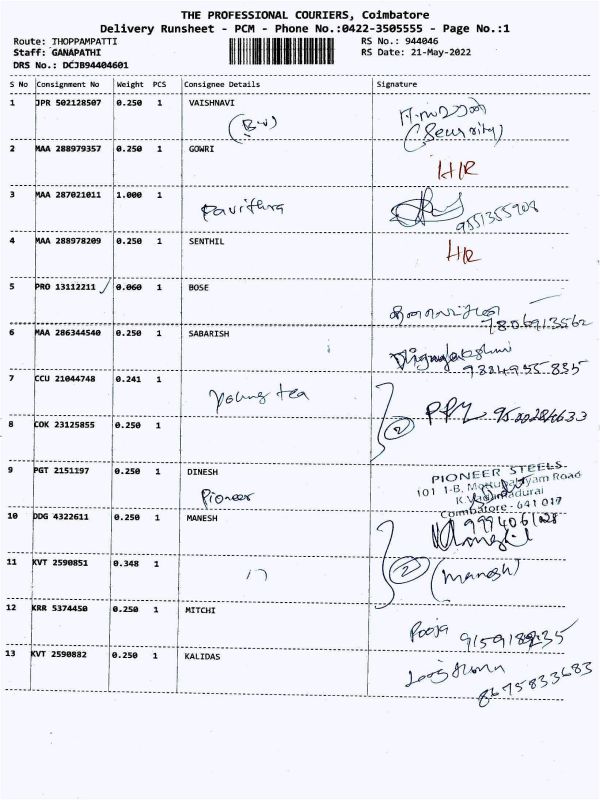 THE PROFESSIONAL COURIERS, Coimbatore
Delivery Runsheet - PCM - Phone No.:0422-3505555 - Page No.:1
Route: THOPPAMPATTI RS No.: 944046
Staff: GANAPATHI RS Date: 21-May-2022
DRS No.: DCJB94404601
S No Consignment No Weight PCS Consignee Details Signature
1 JPR 502128507 0.250 1 VAISHNAVI
(Security)
2 MAA 288979357 0.250 1 GOWRI
H/R
3 MAA 287021011 1.000 1
Pavithra
9551355908
4 MAA 288978209 0.250 1 SENTHIL
H/R
5 PRO 13112211 0.060 1 BOSE
7806913562
6 MAA 286344540 0.250 1 SABARISH
7 CCU 21044748 0.241 1
Young tea
(2) PPY 9500284633
8 COK 23125855 0.250 1
9 PGT 2151197 0.250 1 DINESH
Pioneer
PIONEER STEELS
101 1-B, Mettupalayam Road
Coimbatore - 641 017
10 DDG 4322611 0.250 1 MANESH
11 KVT 2590851 0.348 1
(2) (Manesh)
12 KRR 5374450 0.250 1 MITCHI
Pooja
13 KVT 2590882 0.250 1 KALIDAS
8675833683